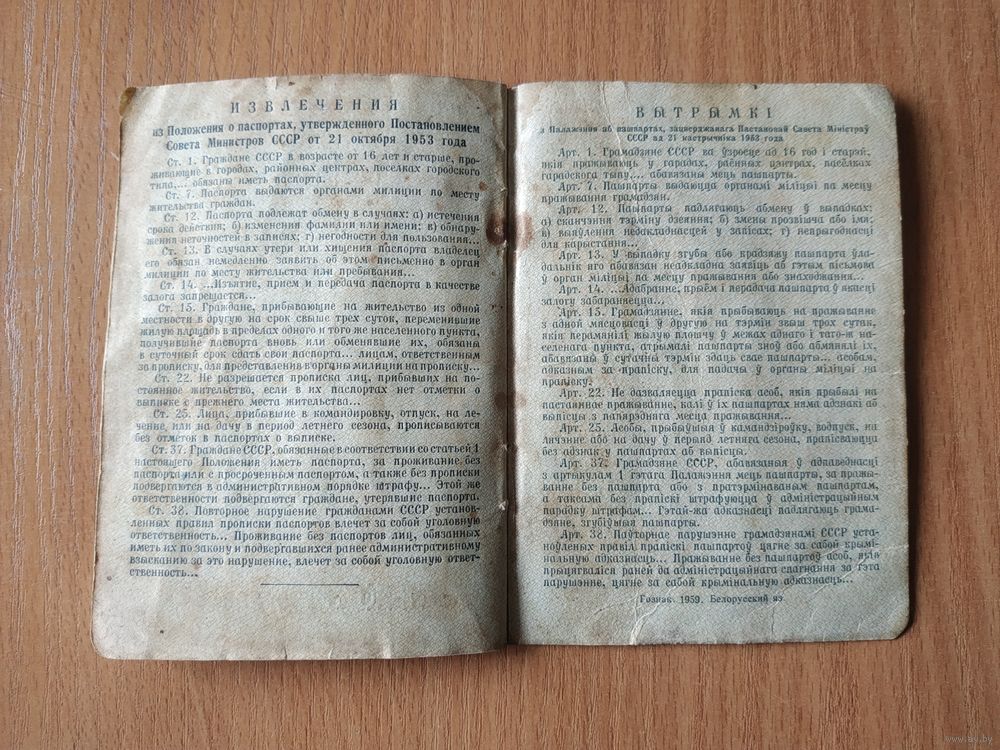 ИЗВЛЕЧЕНИЯ
из Положения о паспортах, утвержденного Постановлением
Совета Министров СССР от 21 октября 1953 года
Ст. 1. Граждане СССР в возрасте от 16 лет и старше, про-
живающие в городах, районных центрах, поселках городского
типа,... обязаны иметь паспорта.
Ст. 7. Паспорта выдаются органами милиции по месту
жительства граждан.
Ст. 12. Паспорта подлежат обмену в случаях: а) истечения
срока действия; б) изменения фамилии или имени; в) обнару-
жения неточностей в записях; г) негодности для пользования...
Ст. 13. В случаях утери или хищения паспорта владелец
его обязан немедленно заявить об этом письменно в орган
милиции по месту жительства или пребывания...
Ст. 14. ...Изъятие, прием и передача паспорта в качестве
залога запрещается...
Ст. 15. Граждане, прибывающие на жительство из одной
местности в другую на срок свыше трех суток, переменившие
жилую площадь в пределах одного и того же населенного пункта,
получившие паспорта вновь или обменявшие их, обязаны
в суточный срок сдать свои паспорта... лицам, ответственным
за прописку, для представления в органы милиции на прописку...
Ст. 22. Не разрешается прописка лиц, прибывших на по-
стоянное жительство, если в их паспортах нет отметки о
выписке с прежнего места жительства...
Ст. 25. Лица, прибывшие в командировку, отпуск, на ле-
чение, или на дачу в период летнего сезона, прописываются
без отметок в паспортах о выписке.
Ст. 37. Граждане СССР, обязанные в соответствии со статьей 1
настоящего Положения иметь паспорта, за проживание без
паспорта или с просроченным паспортом, а также без прописки
подвергаются в административном порядке штрафу... Этой же
ответственности подвергаются граждане, утерявшие паспорта.
Ст. 38. Повторное нарушение гражданами СССР установ-
ленных правил прописки паспортов влечет за собой уголовную
ответственность... Проживание без паспортов лиц, обязанных
иметь их по закону и подвергавшихся ранее административному
взысканию за это нарушение, влечет за собой уголовную ответ-
ственность...
ВЫТРЫМКІ
з Палажэння аб пашпартах, зацверджанага Пастановай Савета Міністраў
СССР ад 21 кастрычніка 1953 года
Арт. 1. Грамадзяне СССР ва ўзросце ад 16 год і старэй,
якія пражываюць у гарадах, раённых цэнтрах, пасёлках
гарадскога тыпу,... абавязаны мець пашпарты.
Арт. 7. Пашпарты выдаюцца органамі міліцыі па месцу
пражывання грамадзян.
Арт. 12. Пашпарты падлягаюць абмену ў выпадках:
а) сканчэння тэрміну дзеяння; б) змены прозвішча або імя;
в) выяўлення недакладнасцей у запісах; г) непрыгоднасці
для карыстання...
Арт. 13. У выпадку згубы або крадзяжу пашпарта ўла-
дальнік яго абавязан неадкладна заявіць аб гэтым пісьмова
ў орган міліцыі па месцу пражывання або знаходжання...
Арт. 14. ...Адабранне, прыём і перадача пашпарта ў якасці
залогу забараняецца...
Арт. 15. Грамадзяне, якія прыбываюць на пражыванне
з адной мясцовасці ў другую на тэрмін звыш трох сутак,
якія перамянілі жылую плошчу ў межах аднаго і таго-ж на-
селенага пункта, атрымалі пашпарты зноў або абмянялі іх,
абавязаны ў сутачны тэрмін здаць свае пашпарты... асобам,
адказным за прапіску, для падачы ў органы міліцыі на
прапіску.
Арт. 22. Не дазваляецца прапіска асоб, якія прыбылі на
пастаяннае пражыванне, калі ў іх пашпартах няма адзнакі аб
выпісцы з папярэдняга месца пражывання...
Арт. 25. Асобы, прыбыўшыя ў камандзіроўку, водпуск, на
лячэнне або на дачу ў перыяд летняга сезона, прапісваюцца
без адзнак у пашпартах аб выпісцы.
Арт. 37. Грамадзяне СССР, абавязаныя ў адпаведнасці
з артыкулам 1 гэтага Палажэння мець пашпарты, за пражы-
ванне без пашпарта або з пратэрмінаваным пашпартам,
а таксама без прапіскі штрафуюцца ў адміністрацыйным
парадку штрафам... Гэтай-жа адказнасці падлягаюць грама-
дзяне, згубіўшыя пашпарты.
Арт. 38. Паўторнае парушэнне грамадзянамі СССР уста-
ноўленых правіл прапіскі пашпартоў цягне за сабой крымі-
нальную адказнасць... Пражыванне без пашпартоў асоб, якія
прыцягваліся раней да адміністрацыйнага спагнання за гэта
парушэнне, цягне за сабой крымінальную адказнасць...
Гознак. 1959. Белорусский яз.
www.ay.by